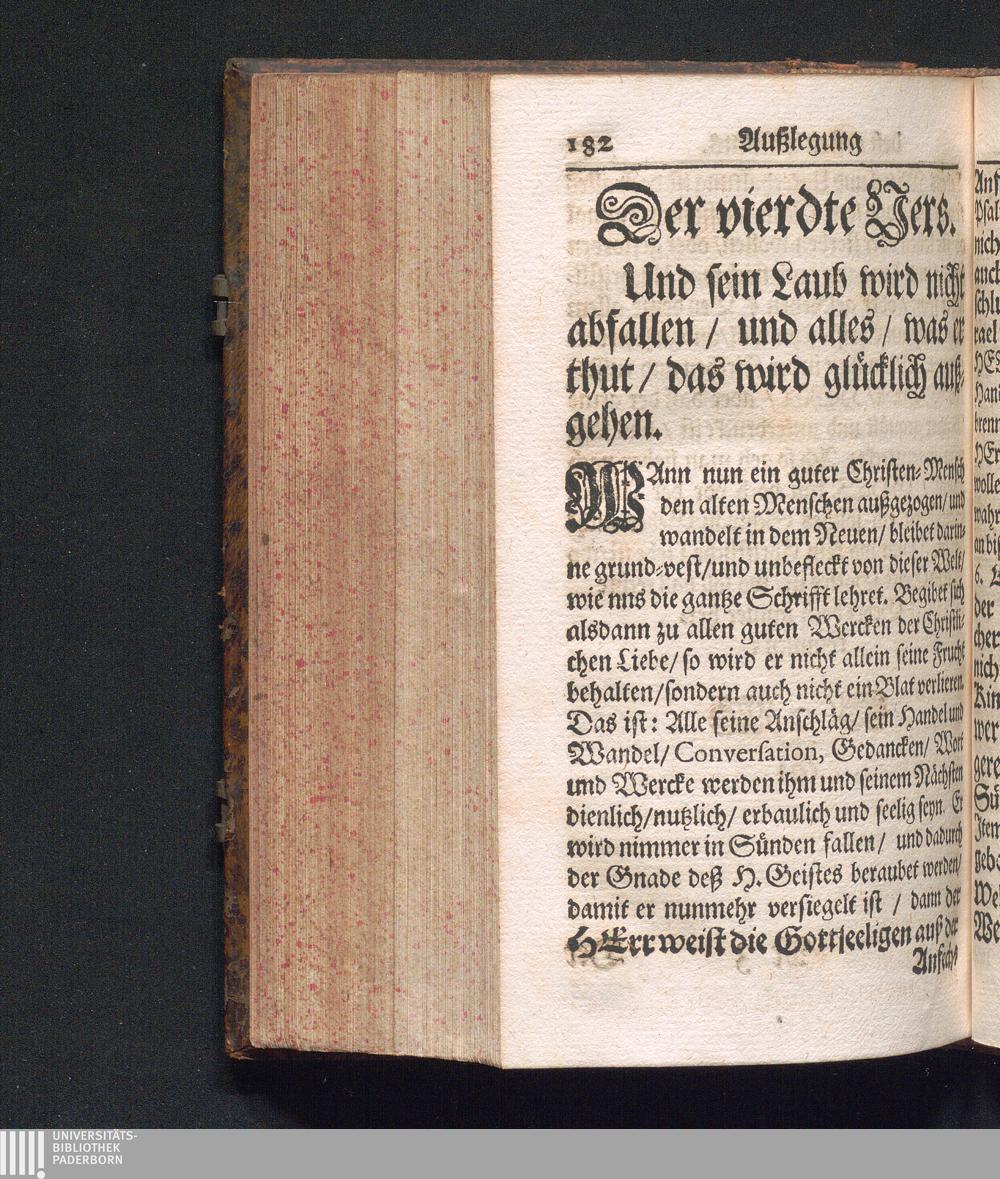 182 Außlegung
Der vierdte Vers.
Und sein Laub wird nicht
abfallen / und alles / was er
thut / das wird glücklich auß-
gehen.
WAnn nun ein guter Christen-Mensch
den alten Menschen außgezogen / und
wandelt in dem Neuen / bleibet darin-
ne grund-vest / und unbefleckt von dieser Welt /
wie nns die gantze Schrifft lehret. Begibet sich
alsdann zu allen guten Wercken der Christli-
chen Liebe / so wird er nicht allein seine Frucht
behalten / sondern auch nicht ein Blat verlieren.
Das ist: Alle seine Anschläg / sein Handel und
Wandel / Conversation, Gedancken / Wort
und Wercke werden ihm und seinem Nächsten
dienlich / nutzlich / erbaulich und seelig seyn. Er
wird nimmer in Sünden fallen / und dadurch
der Gnade deß H. Geistes beraubet werden /
damit er nunmehr versiegelt ist / dann der
HErr weist die Gottseeligen auß der
Anfech-
UNIVERSITÄTS-
BIBLIOTHEK
PADERBORN